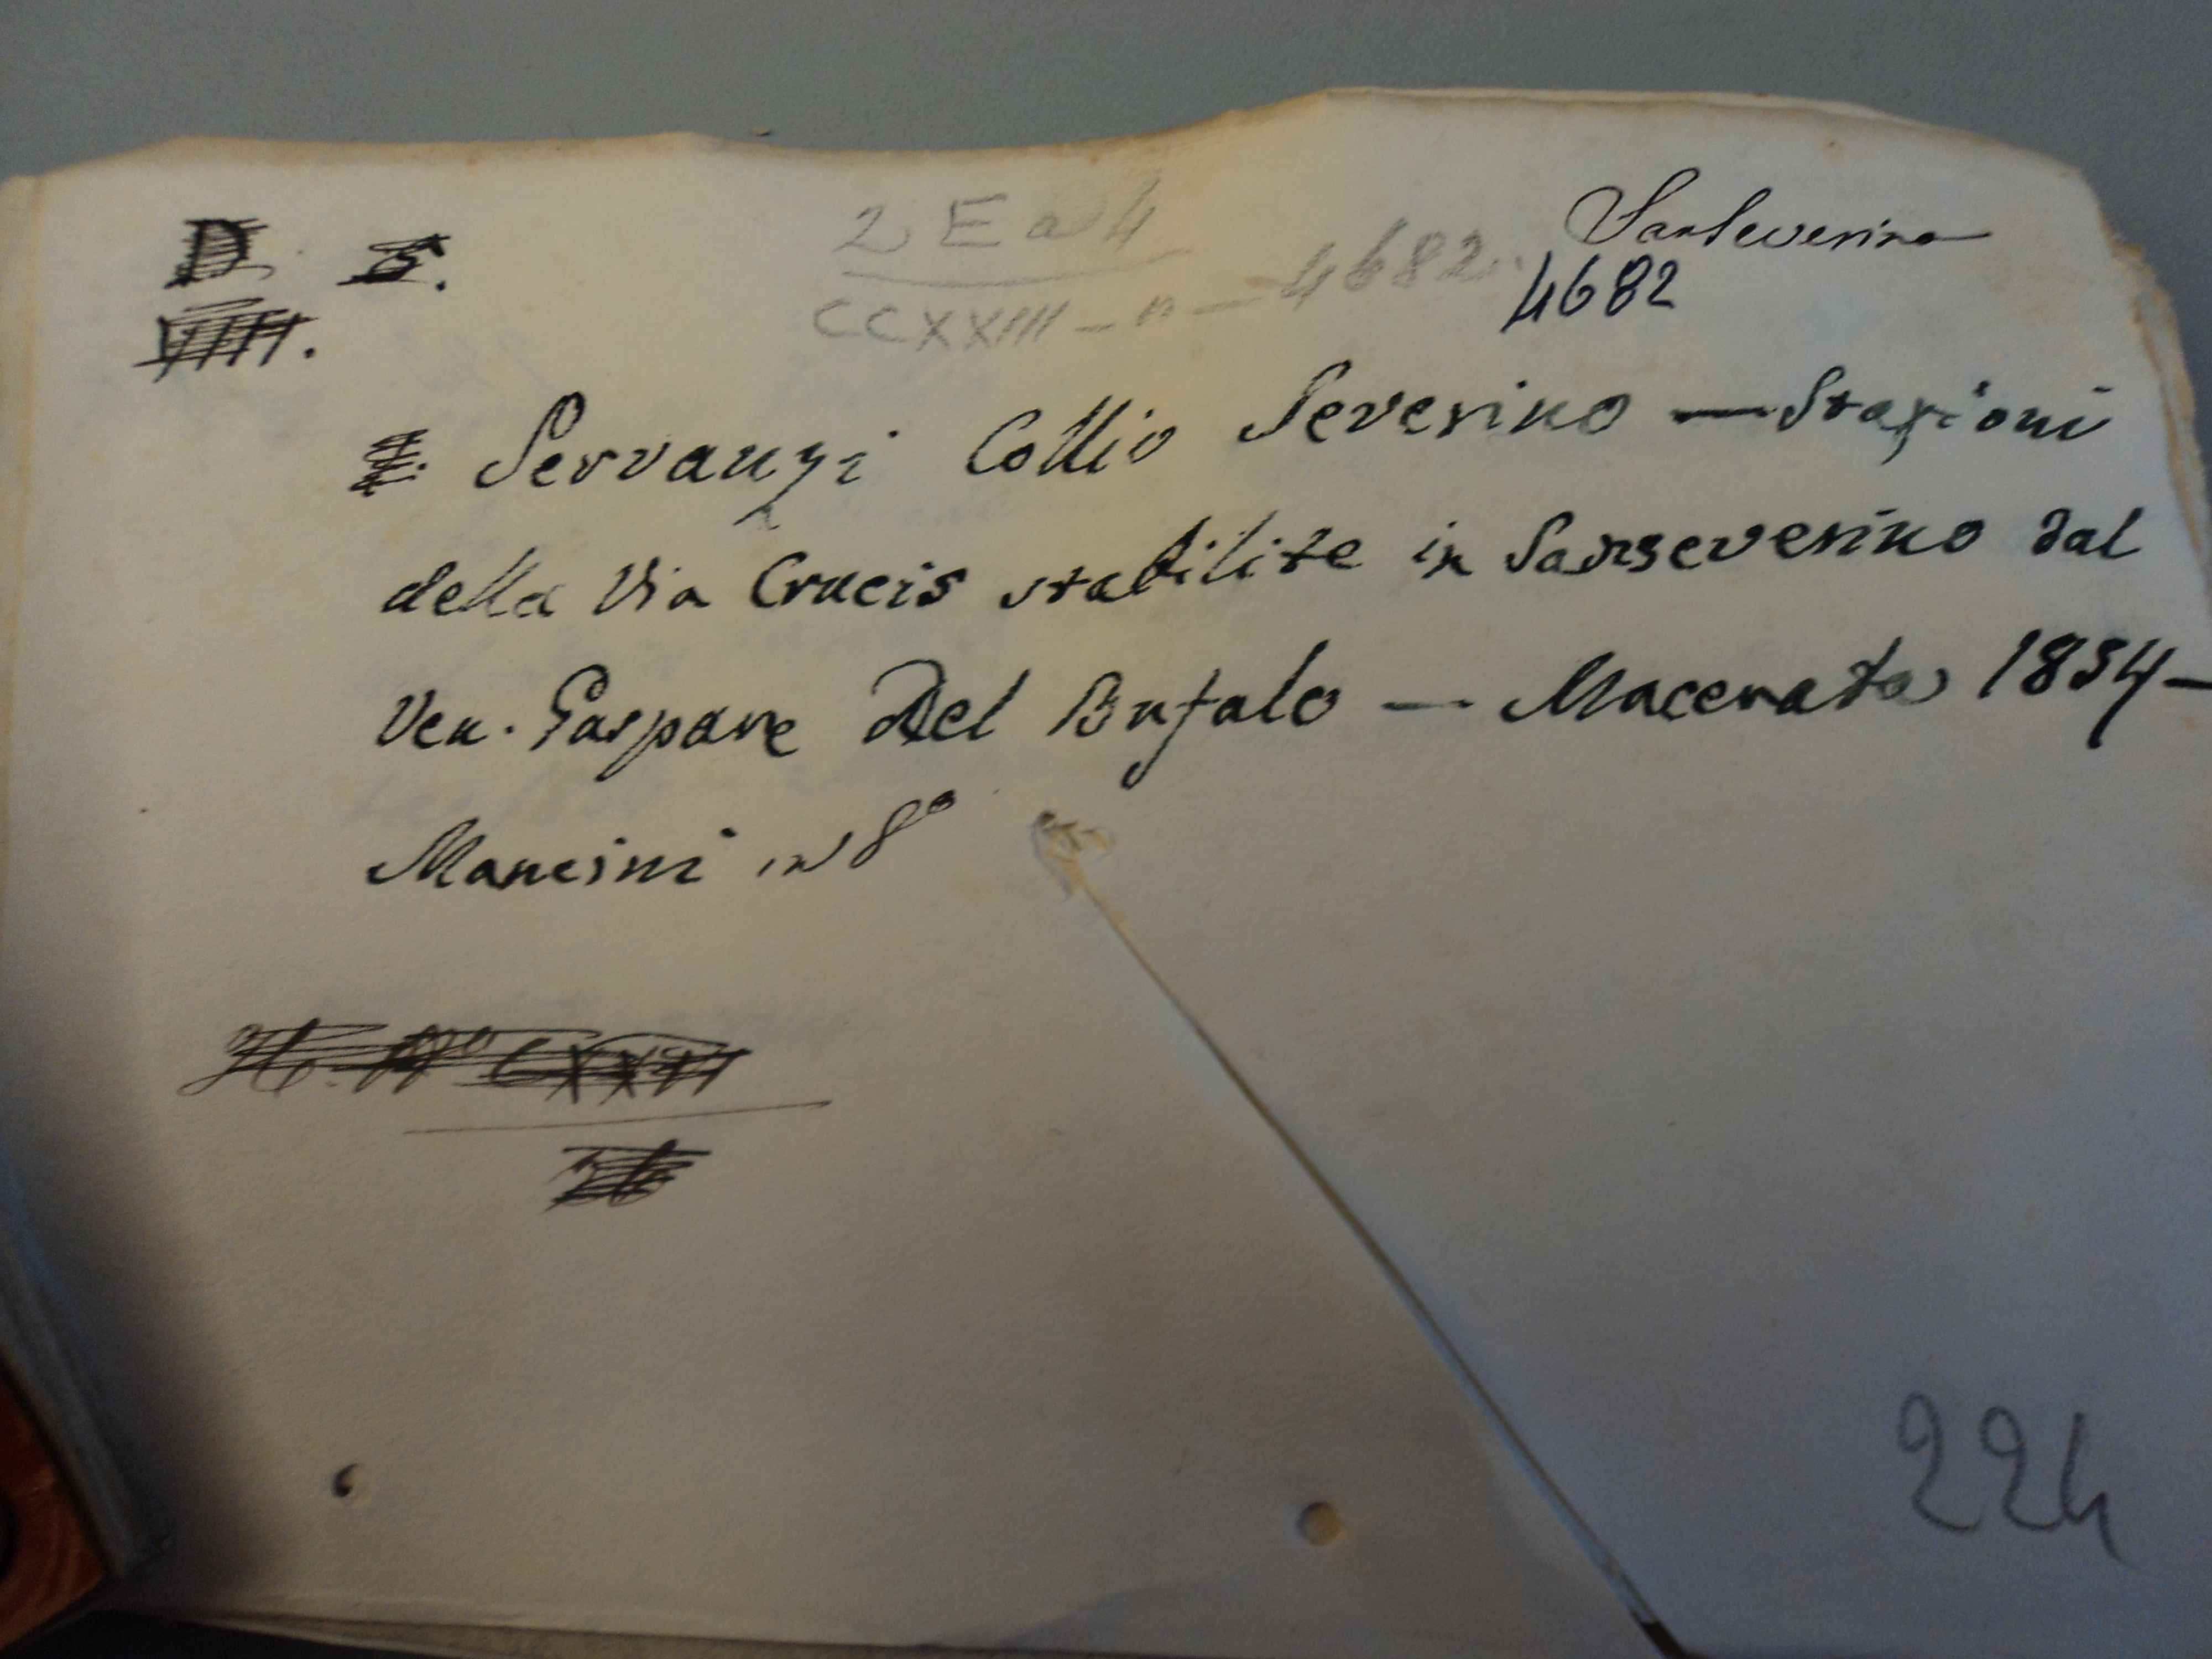 D. 5.
VIIII.
2 E a 4
CCXXIII - n - 4682.
SanSeverino
4682
Servanzi Collio Severino — Stazioni
della Via Crucis stabilite in Sanseverino dal
Ven. Gaspare Del Bufalo — Macerata 1854 -
Mancini in 8º
224